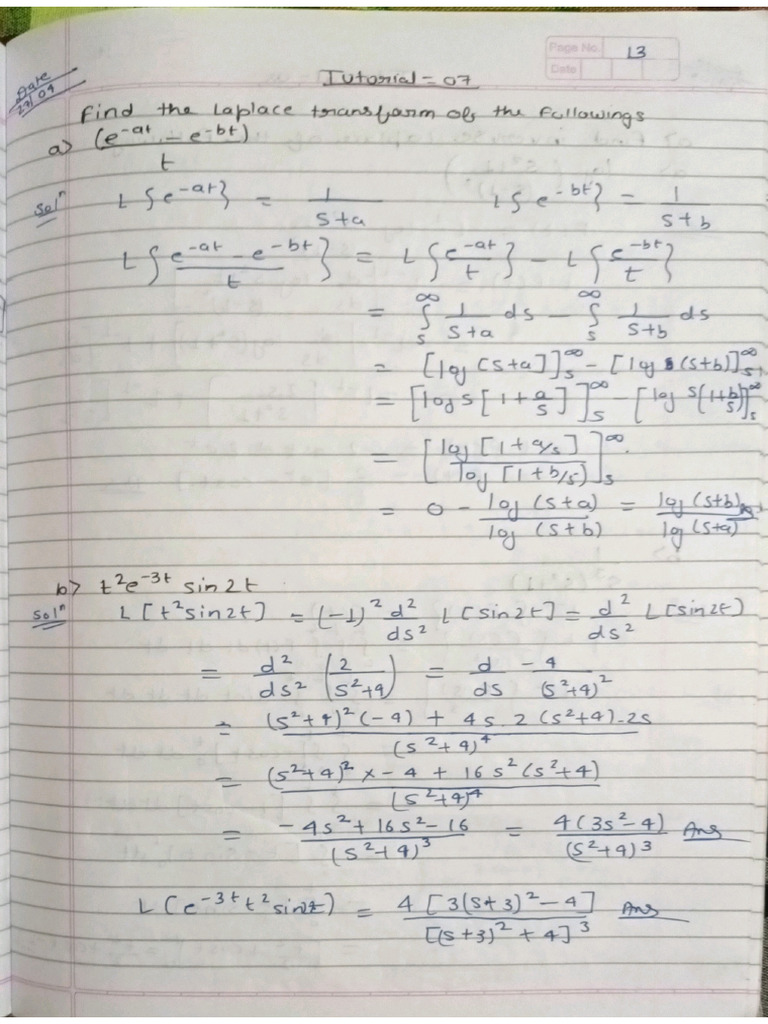 Page No. 13
Date
Date 27/09
Tutorial = 07
Find the Laplace transform of the followings
a) (e^-at - e^-bt) / t
Solⁿ L{e^-at} = 1/(s+a) L{e^-bt} = 1/(s+b)
L{(e^-at - e^-bt)/t} = L{e^-at/t} - L{e^-bt/t}
= ∫_s^∞ 1/(s+a) ds - ∫_s^∞ 1/(s+b) ds
= [log (s+a)]_s^∞ - [log (s+b)]_s^∞
= [log s[1 + a/s]]_s^∞ - [log s(1+b/s)]_s^∞
= [log [1+a/s] / log [1+b/s)]_s^∞
= 0 - log (s+a) / log (s+b) = log (s+b) / log (s+a)
b) t²e^-3t sin2t
Solⁿ L[t²sin2t] = (-1)² d²/ds² L[sin2t] = d²/ds² L[sin2t]
= d²/ds² (2/(s²+4)) = d/ds -4/(s²+4)²
= ((s²+4)²(-4) + 4s.2(s²+4).2s) / (s²+4)⁴
= ((s²+4)² x -4 + 16s²(s²+4)) / (s²+4)⁴
= (-4s²+16s²-16) / (s²+4)³ = 4(3s²-4) / (s²+4)³ Ans
L(e^-3t t² sin2t) = 4[3(s+3)²-4] / [(s+3)²+4]³ Ans